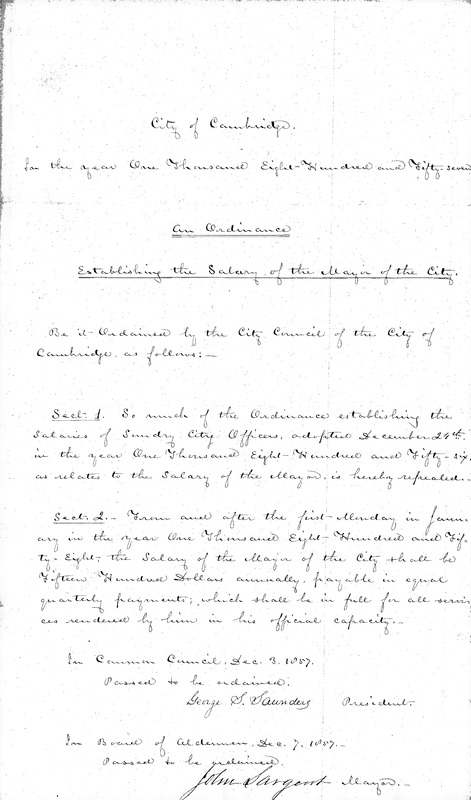 City of Cambridge.
In the year One Thousand Eight-Hundred and Fifty-seven
An Ordinance
Establishing the Salary of the Mayor of the City.
Be it Ordained by the City Council of the City of
Cambridge. as follows:—
Sect: 1. So much of the Ordinance establishing the
Salaries of Sundry City Officers, adopted December 24th.
in the year One Thousand Eight-Hundred and Fifty-six,
as relates to the Salary of the Mayor, is hereby repealed.—
Sect: 2.— From and after the first Monday in Janu-
ary in the year One Thousand Eight Hundred and Fif-
ty-Eight, the Salary of the Mayor of the City shall be
Fifteen Hundred Dollars annually, payable in equal
quarterly payments; which shall be in full for all servi-
ces rendered by him in his official capacity.—
In Common Council, Dec. 3. 1857.
Passed to be ordained.
George S. Saunders President.
In Board of Aldermen, Dec. 7, 1857.—
Passed to be ordained.
John Sargent Mayor.—